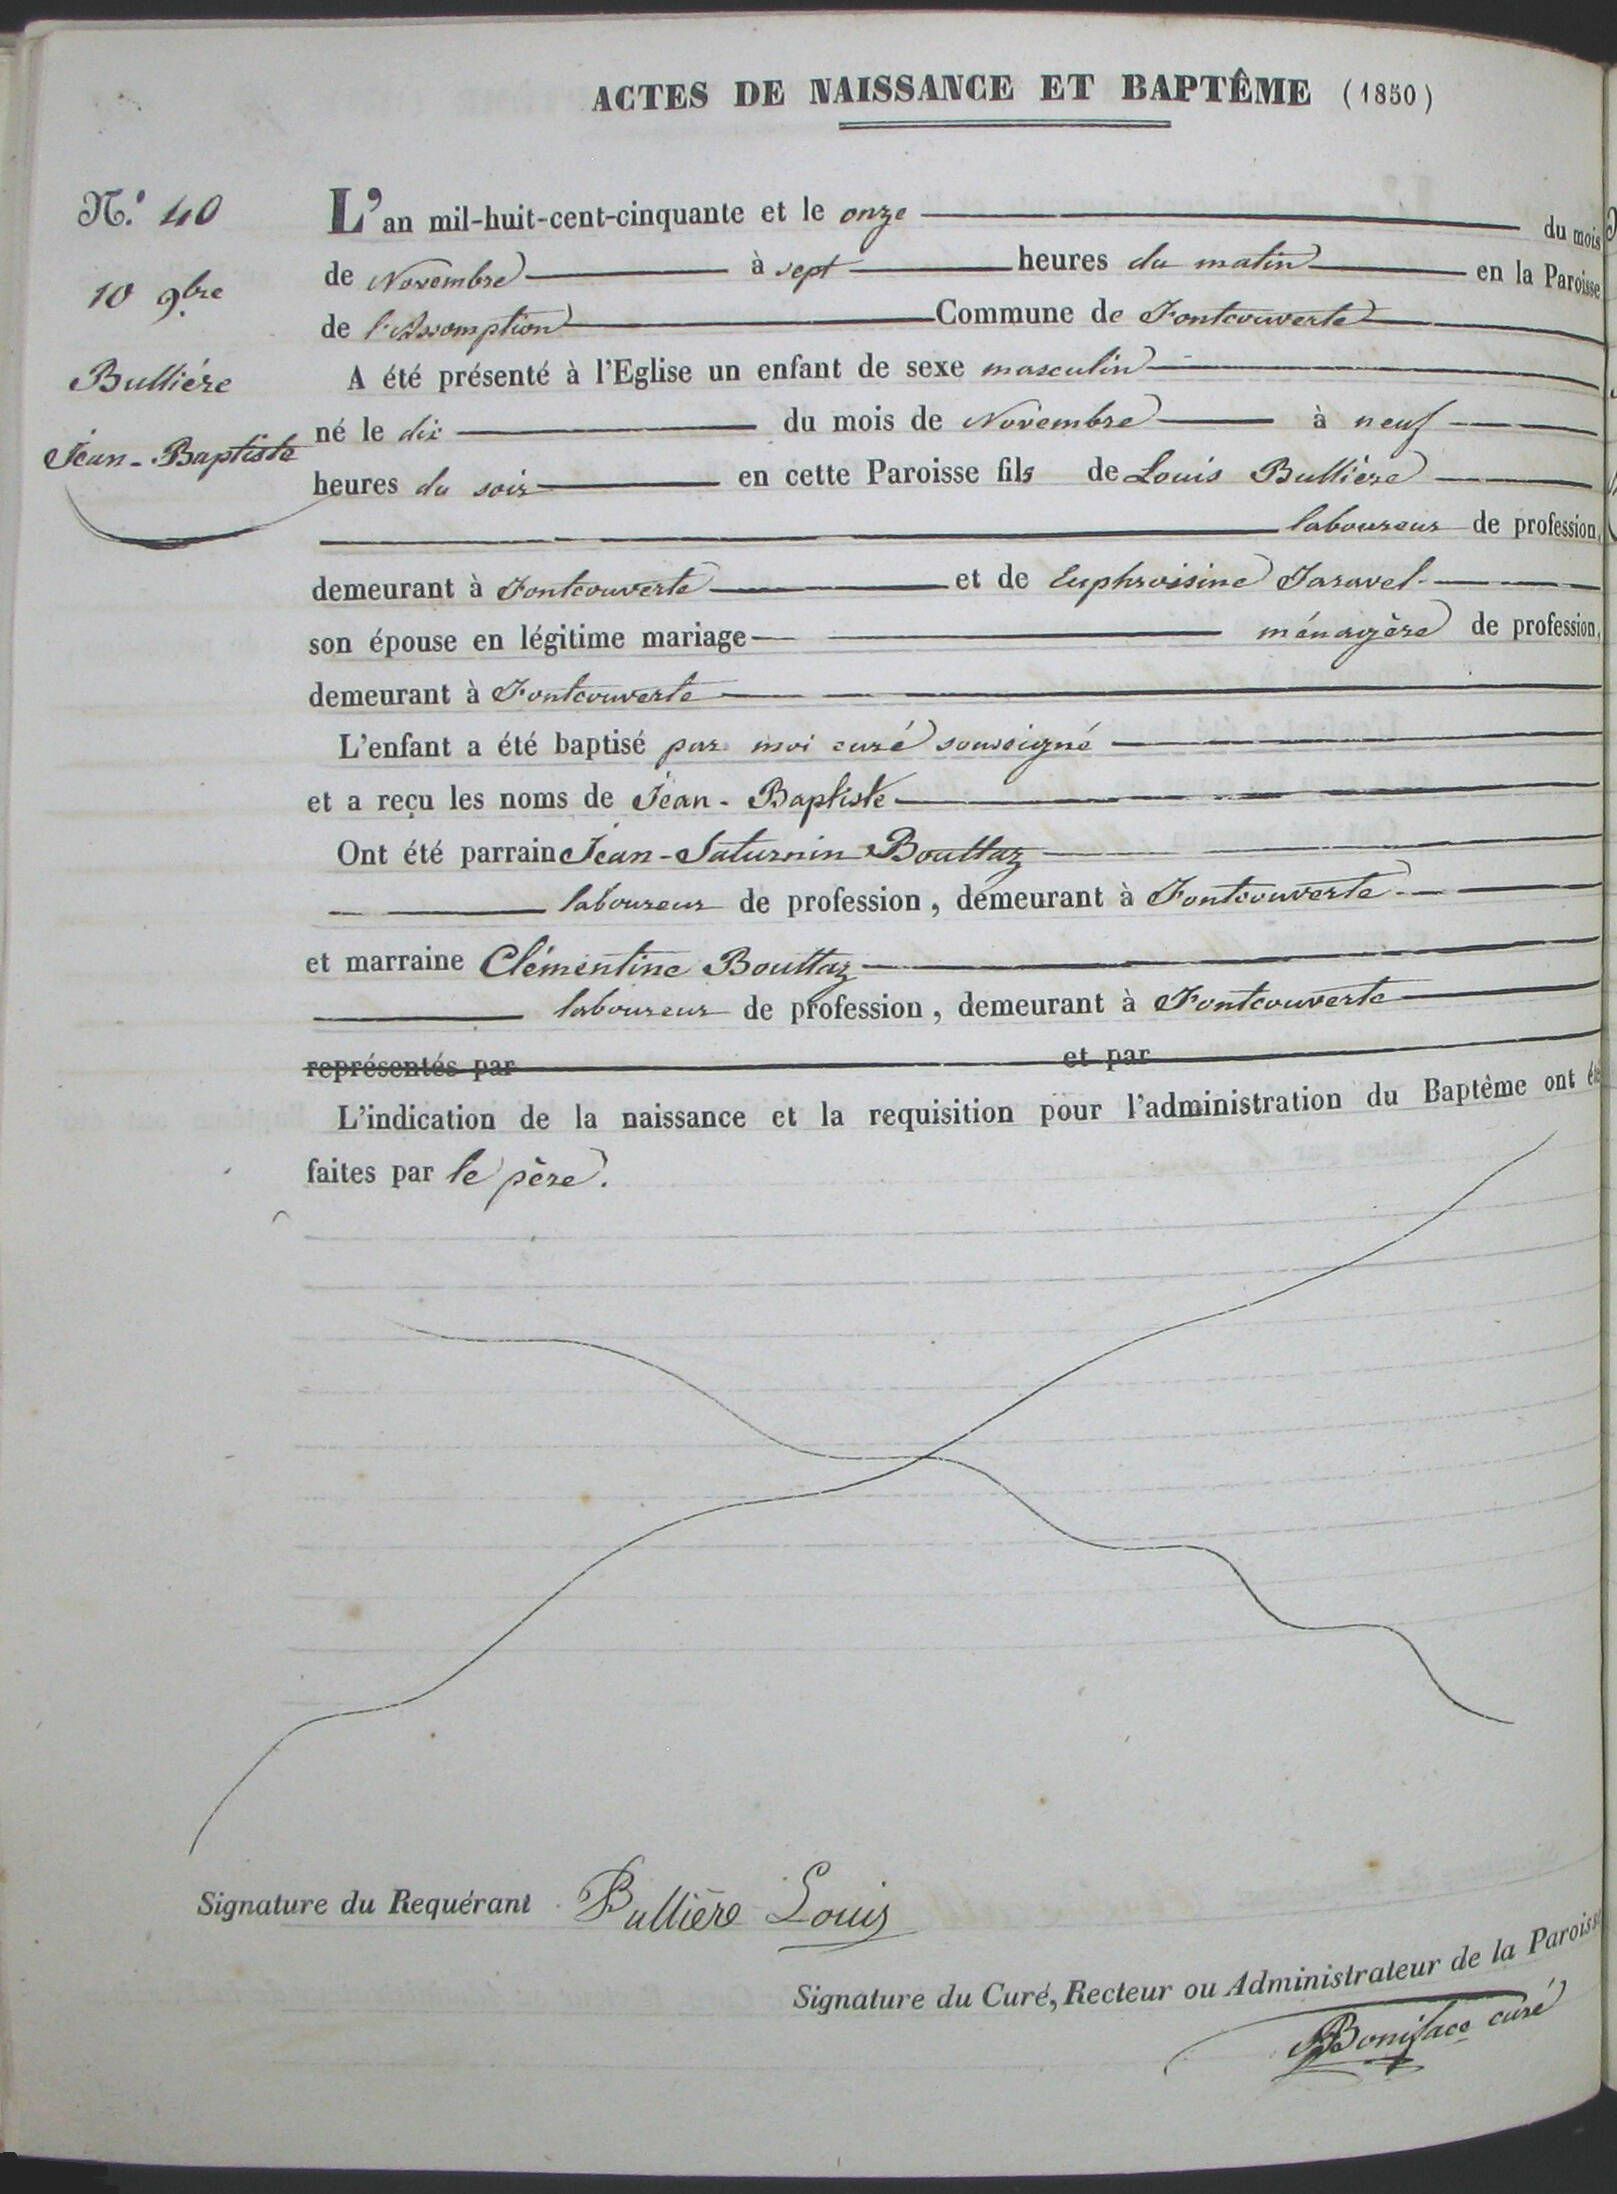 ACTES DE NAISSANCE ET BAPTÊME (1850)
N.º 40
10 9.bre
Bullière
Jean-Baptiste
L'an mil-huit-cent-cinquante et le onze du mois
de Novembre à sept heures du matin en la Paroisse
de l'Assomption Commune de Fontcouverte
A été présenté à l'Eglise un enfant de sexe masculin
né le dix du mois de Novembre à neuf
heures du soir en cette Paroisse fils de Louis Bullière
laboureur de profession,
demeurant à Fontcouverte et de Euphroisine Taravel
son épouse en légitime mariage ménagère de profession,
demeurant à Fontcouverte
L'enfant a été baptisé par moi curé soussigné
et a reçu les noms de Jean-Baptiste
Ont été parrain Jean-Saturnin Bouttaz
laboureur de profession, demeurant à Fontcouverte
et marraine Clémentine Bouttaz
laboureur de profession, demeurant à Fontcouverte
représentés par et par
L'indication de la naissance et la requisition pour l'administration du Baptême ont été
faites par le père.
Signature du Requérant Bullière Louis
Signature du Curé, Recteur ou Administrateur de la Paroisse
Boniface curé